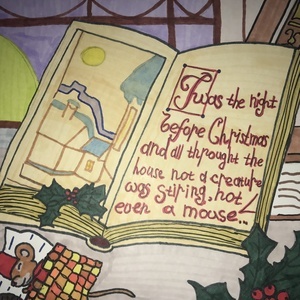 Twas the night
before Christmas
and all throught the
house not a creature
was stiring, not
even a mouse...!